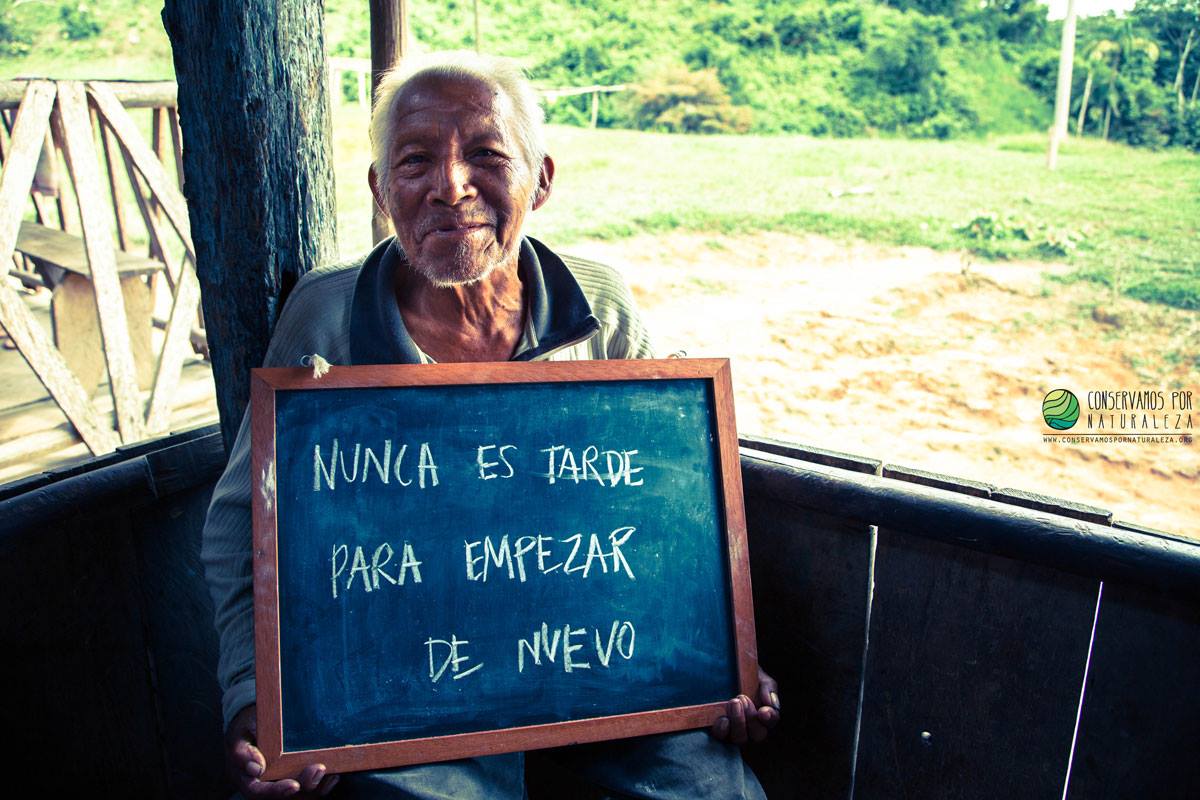 NUNCA ES TARDE
PARA EMPEZAR
DE NUEVO
CONSERVAMOS POR
NATURALEZA
WWW.CONSERVAMOSPORNATURALEZA.ORG